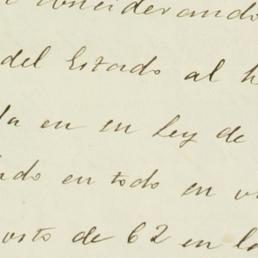 considerando
del Estado al h
da en en ley de
ndo en todo en v
osto de 62 en la